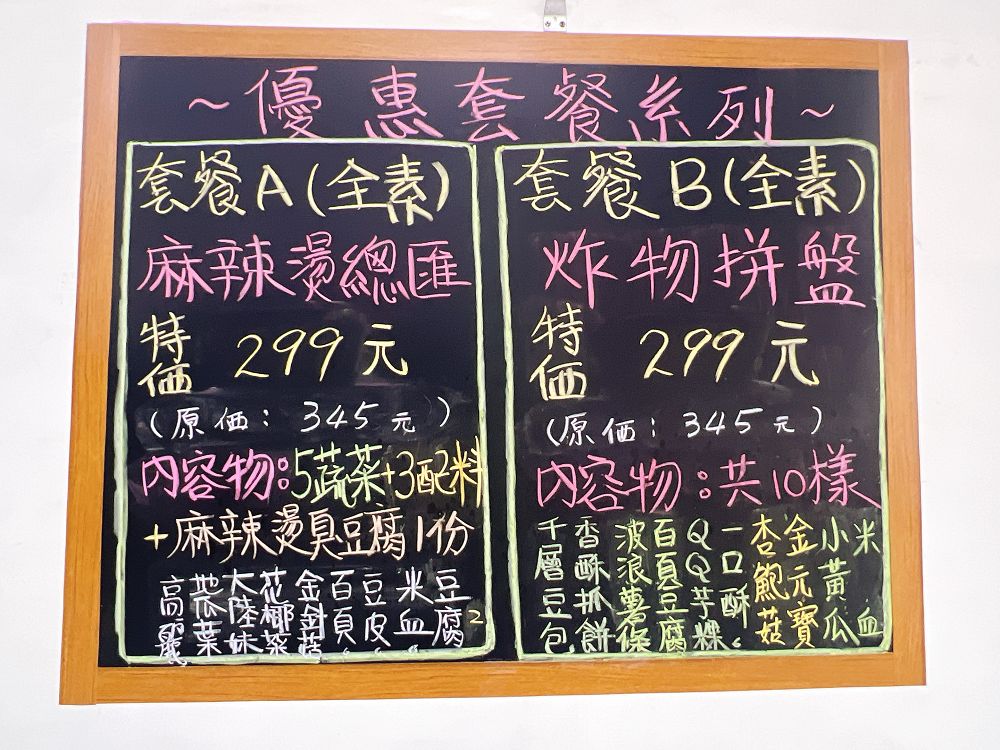 ~優惠套餐系列~
套餐A(全素)
麻辣燙總匯
特価 299元
(原価: 345元)
內容物:5蔬菜+3配料
+麻辣燙臭豆腐1份
高麗
地瓜葉
大陸妹
花椰菜
金針菇
百頁
豆皮
米血
豆腐
套餐B(全素)
炸物拼盤
特価 299元
(原価: 345元)
內容物:共10樣
千層豆包
香酥抓餅
波浪薯條
百頁豆腐
QQ芋粿
一口酥
杏鮑菇
金元寶
小黃瓜
米血